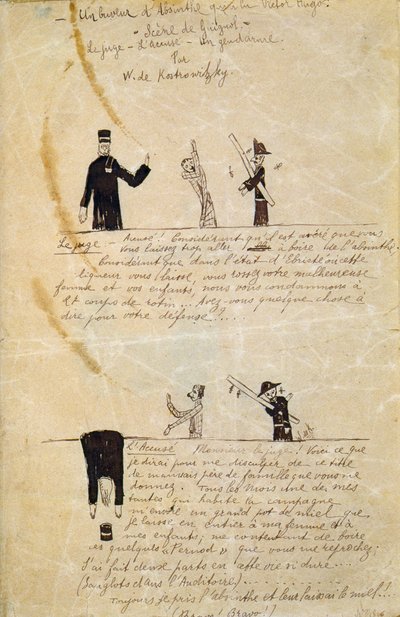 Un buveur d'Absinthe qui a lu Victor Hugo.
Scène de Guignol
Le juge - L'accusé - un gendarme.
Par
W. de Kostrowitzky.
Le juge :- Accusé! Considérant qu'il est avéré que vous
vous laissez trop aller à boire de l'absinthe.
Considérant que dans l'état d'Ebriété où cette
liqueur vous laisse, vous rossez votre malheureuse
femme et vos enfants, nous vous condamnons à
coups de rotin... Avez-vous quelque chose à
dire pour votre défense?....
L'Accusé Monsieur le juge! Voici ce que
je dirai pour me disculper de ce titre
de mauvais père de famille que vous me
donnez: Tous les mois une de mes
tantes qui habite la campagne
m'envoie un grand pot de miel que
je laisse en entier à ma femme et à
mes enfants; me contentant de boire
ces quelques "Pernod" que vous me reprochez.
J'ai fait deux parts en cette vie si dure....
(Sanglots dans l'Auditoire)
Toujours je pris l'absinthe et leur laissai le miel!..
(Bravo! Bravo!)